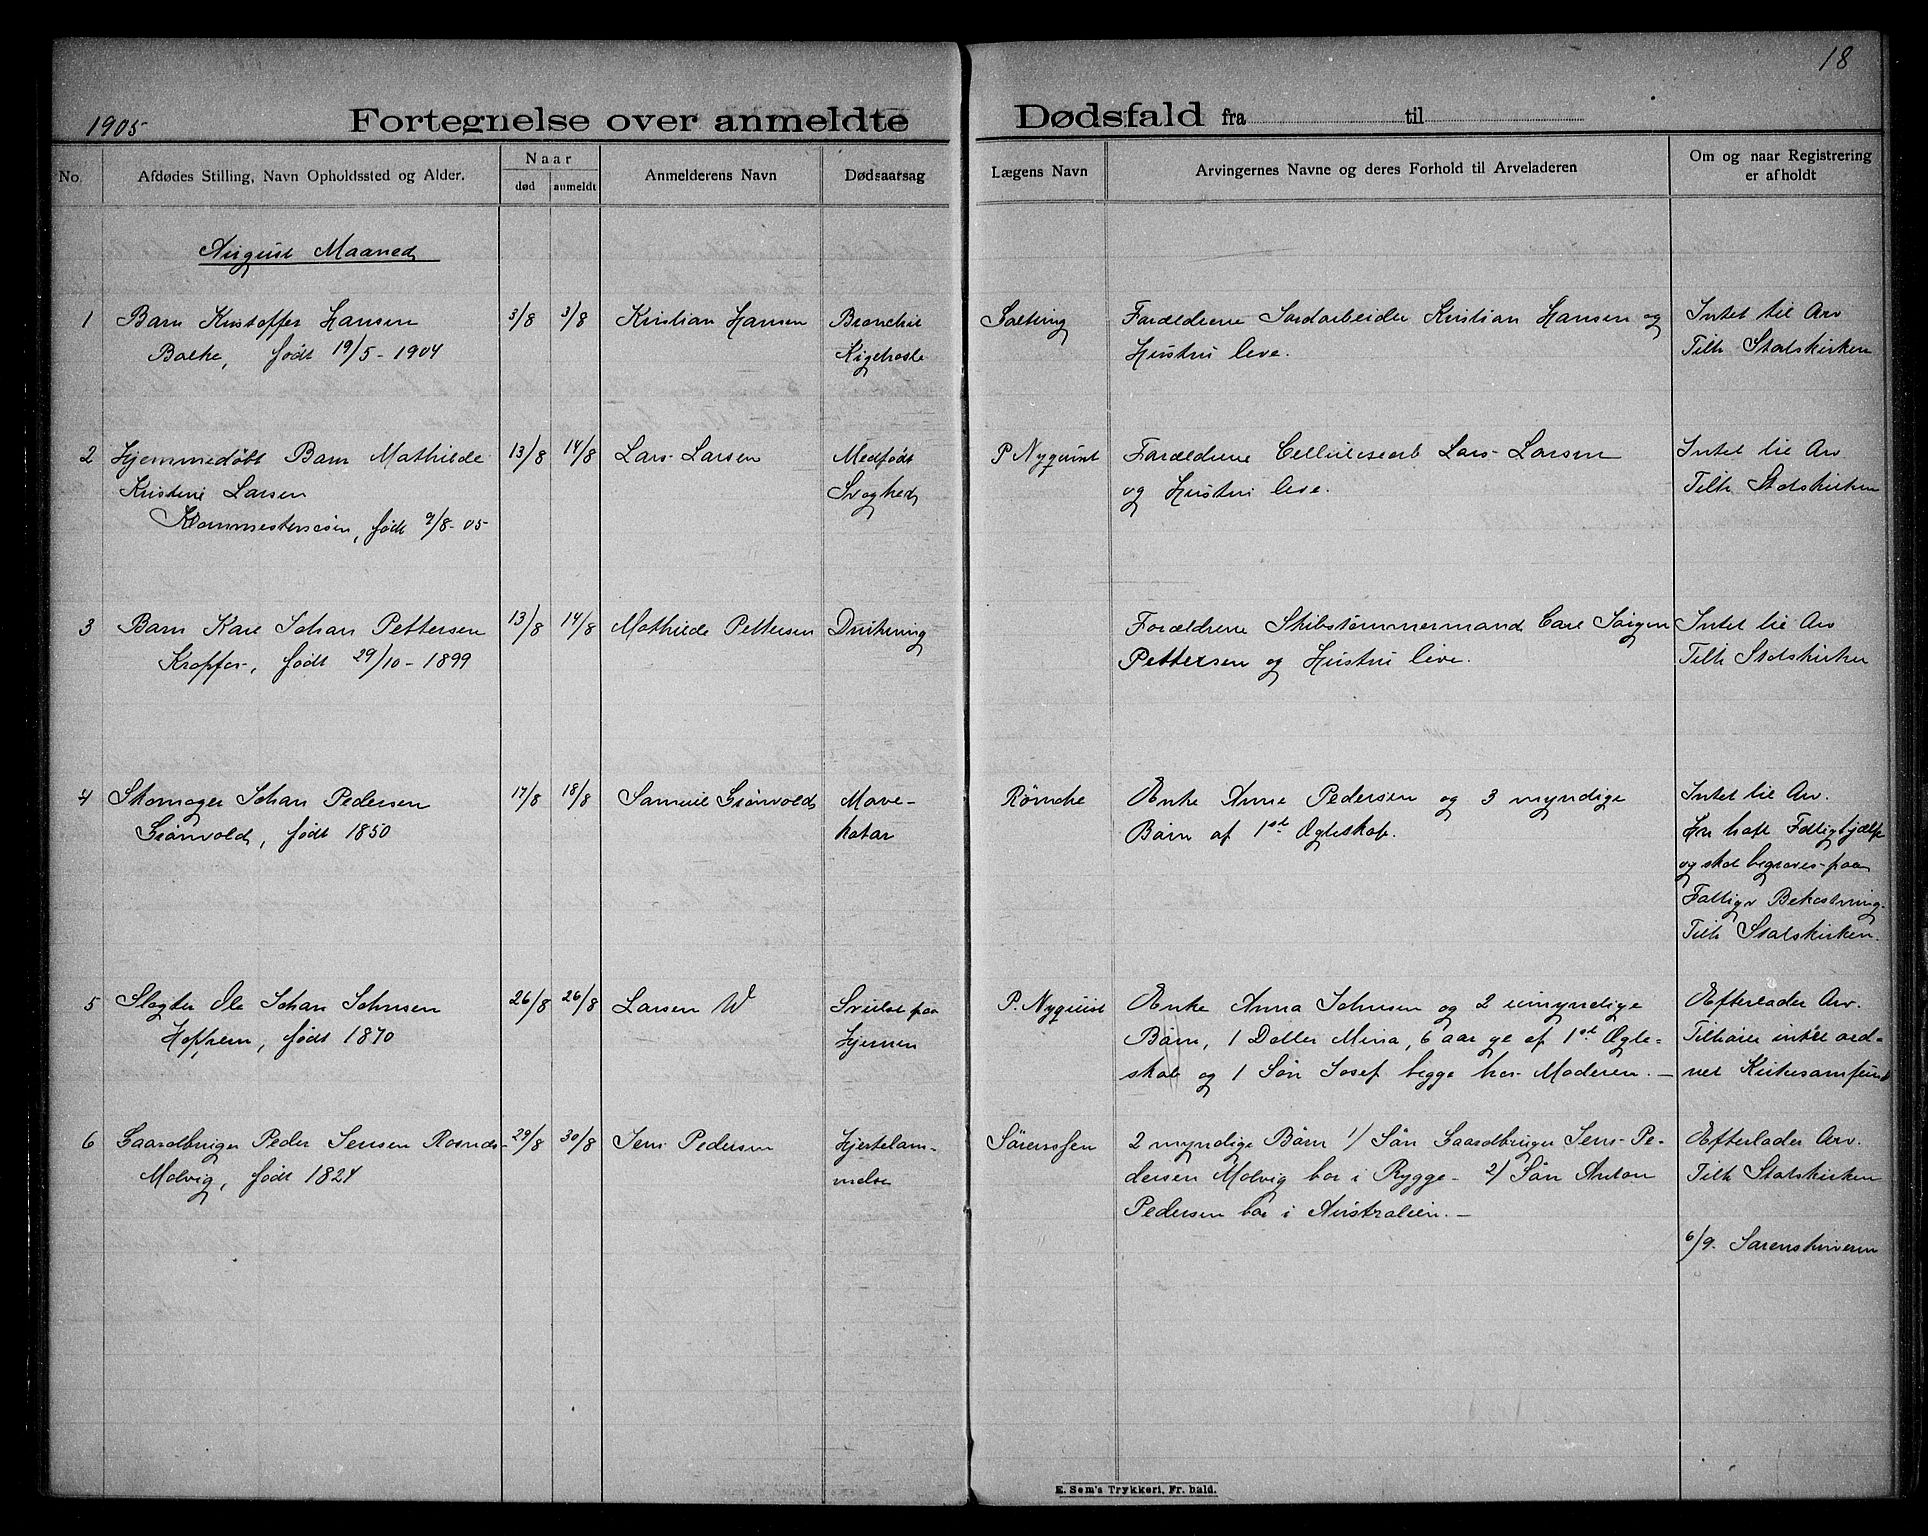 18
1905 Fortegnelse over anmeldte Dødsfald fra til
No. Afdødes Stilling, Navn Opholdssted og Alder. Naar død anmeldt Anmelderens Navn Dødsaarsag Lægens Navn Arvingernes Navne og deres Forhold til Arveladeren Om og naar Registrering er afholdt
August Maaned
1 Barn Kristoffer Hansen 3/8 3/8 Kristian Hansen Bronchit Forældrene Jordarbeider Kristian Hansen og Intet til Arv
Bakke, født 19/5-1904 Kighoste Hustru leve. Tilh Statskirken
2 Hjemmedøbt Barn Mathilde 13/8 14/8 Lars Larsen Medfødt P Nyquist Forældrene Cellulosearb Lars Larsen Intet til Arv
Kristine Larsen Svaghed og Hustru leve. Tilh Statskirken
født 9/8-05
3 Barn Karl Johan Pettersen 13/8 14/8 Mathilde Pettersen Drukning Forældrene Skibstømmermand Carl Jørgen Intet til Arv
Krapfos, født 29/10-1899 Pettersen og Hustru leve. Tilh Statskirken
4 Skomager Johan Pedersen 17/8 18/8 Samuel Grønvold Mave- Rømcke Enke Anna Pedersen og 3 myndige Intet til Arv.
Grønvold, født 1850 katar Børn af 1st Ægteskab. Har havt Fattighjælp
og skal begraves paa
Fattigv Bekostning.
Tilh Statskirken.
5 Slagter Ole Johan Johnsen 26/8 26/8 Larsen W Svulst paa P. Nyquist Enke Anna Johnsen og 2 umyndige Efterlader Arv.
født 1870 Hjernen Børn, 1 Datter Mina, 6 aar gl af 1st Ægte- Tilhører intet ord-
skab og 1 Søn Josef begge hos Moderen. — net Kirkesamfund
6 Gaardbruger Peder Jensen Rosnæs- 29/8 30/8 Jens Pedersen Hjertelam- Sørenssen 2 myndige Børn 1/ Søn Gaardbruger Jens Pe- Efterlader Arv.
Molvig, født 1824 melse dersen Molvig bor i Rygge - 2/ Søn Anton Tilh Statskirken
Pedersen bor i Australien. —
6/9. Sorenskriveren
E. Sem's Trykkeri, Fr.hald.